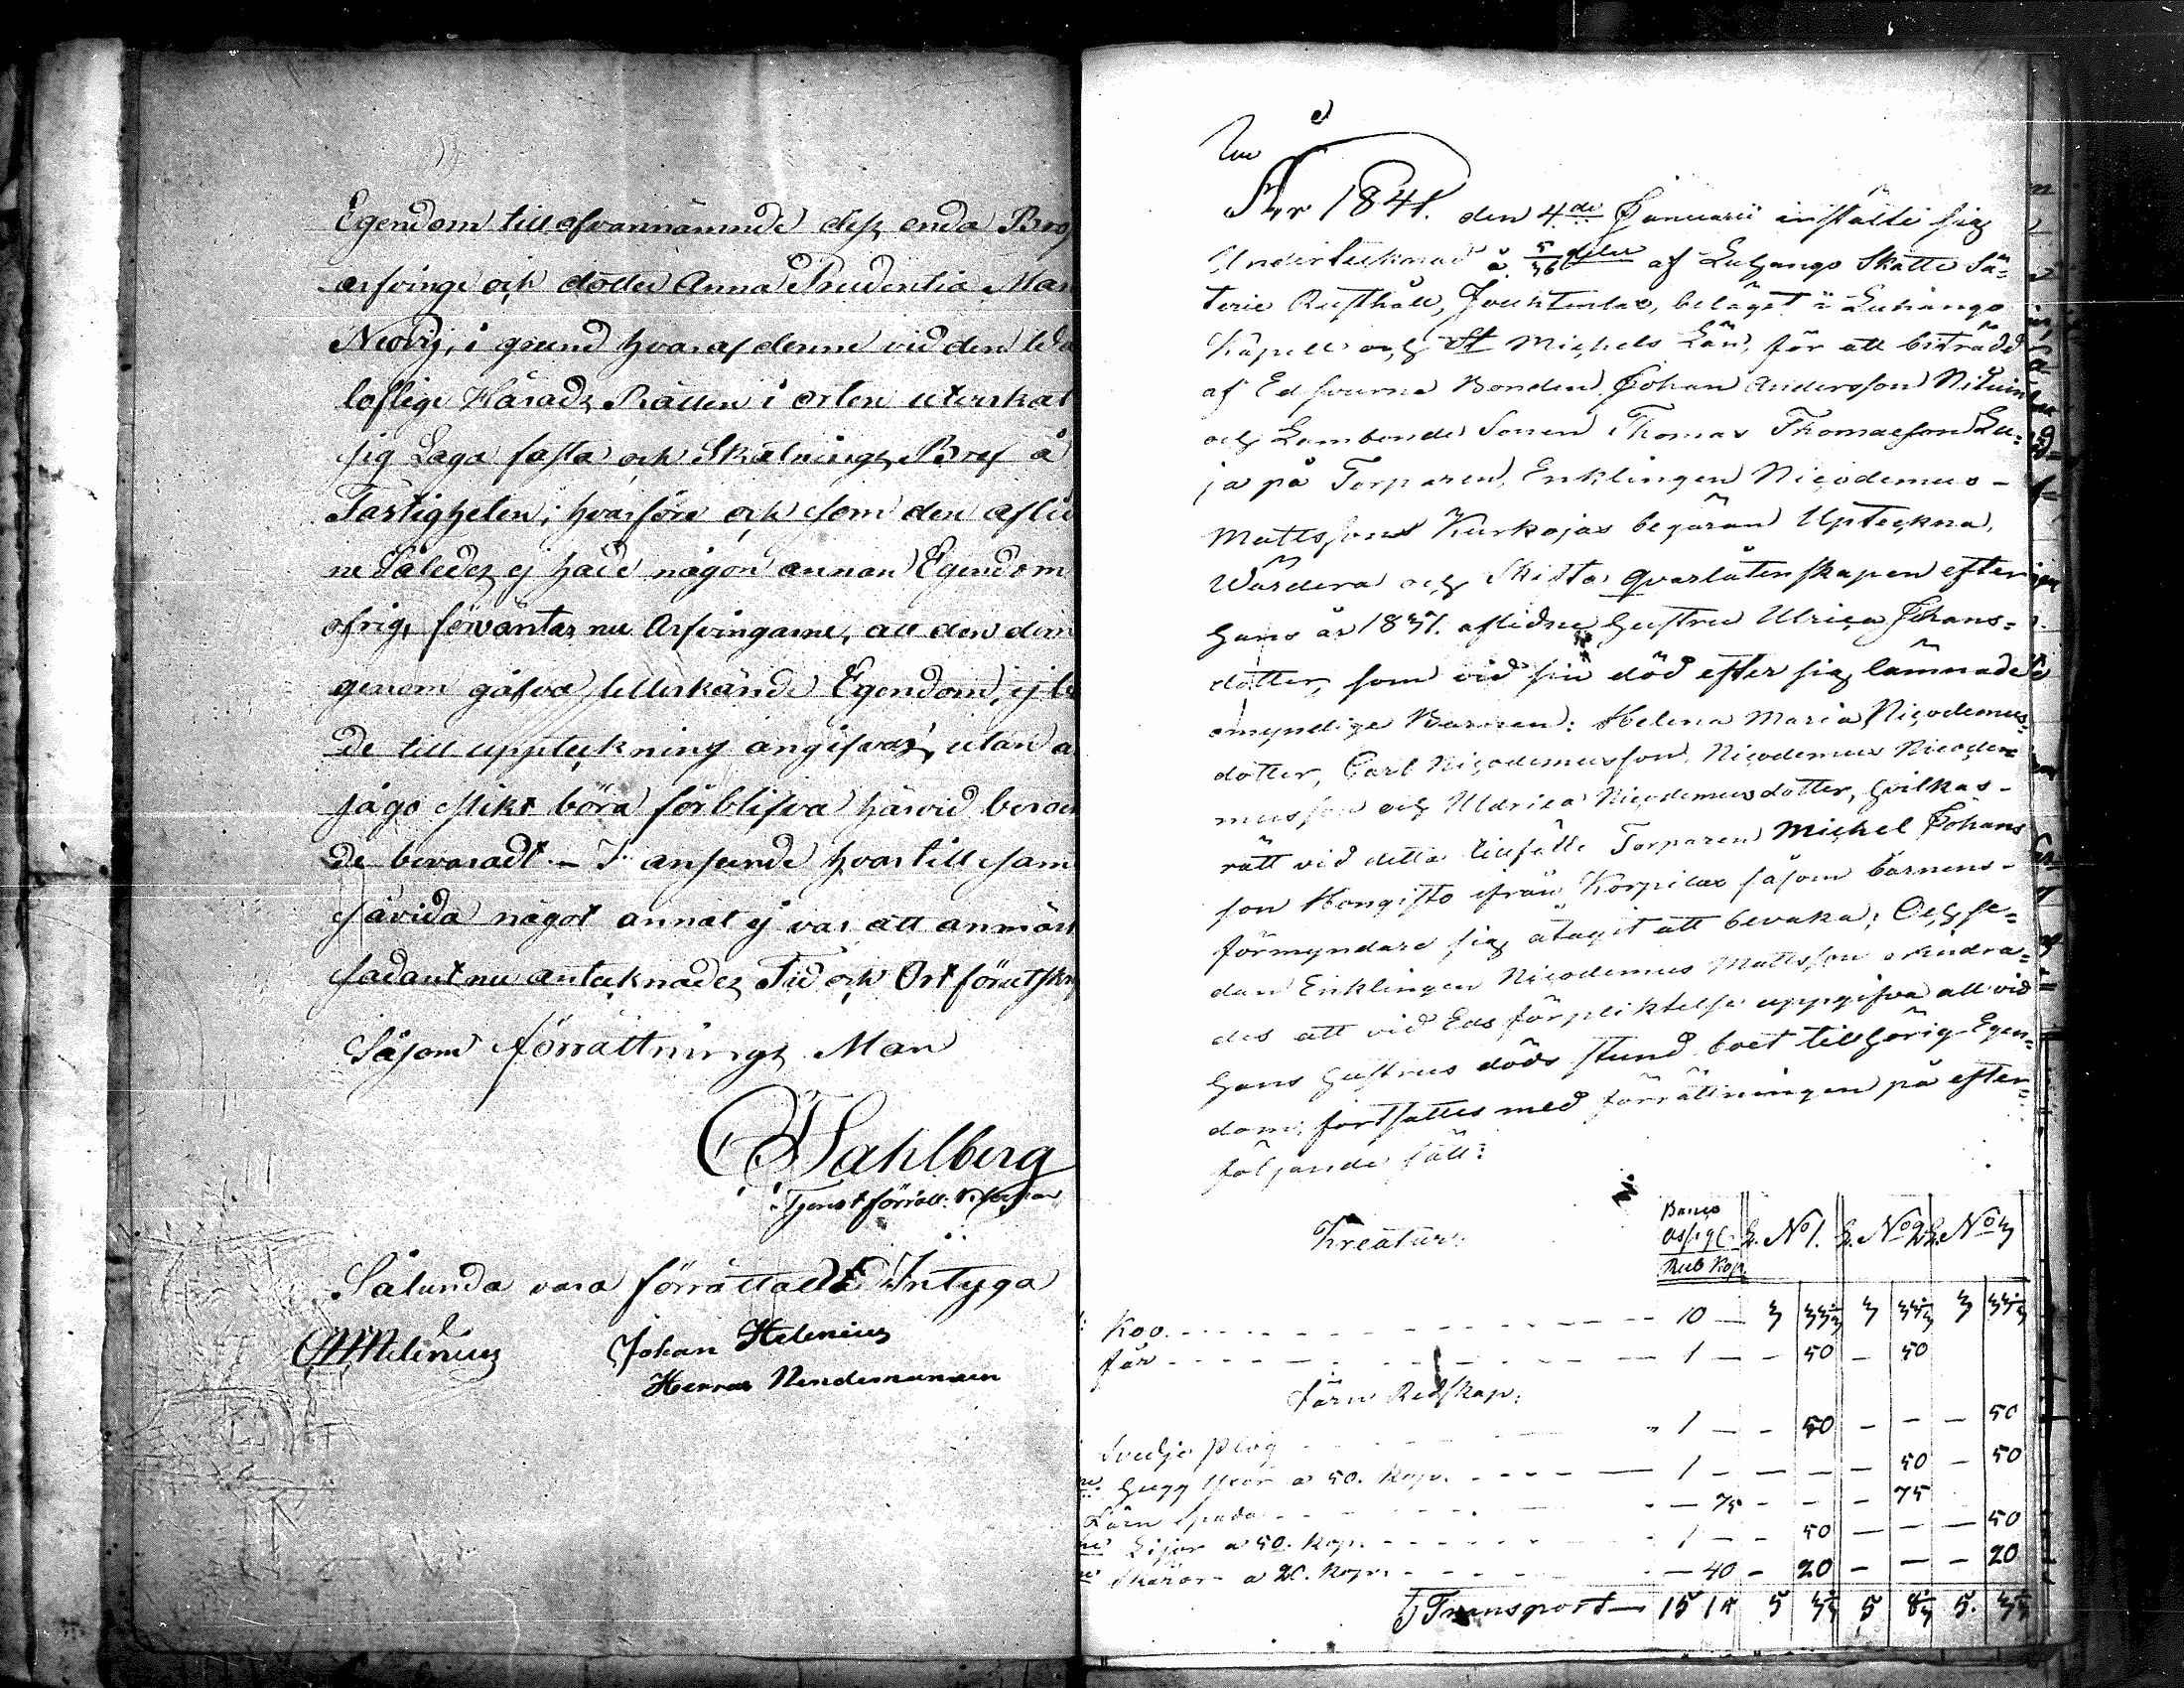 Egendom till ofvannämnde dess enda Bröst
arfvinge och dotter Anna Prudentia Mar
Neovij, i grund hvaraf denne vid den
loflige Härads Rätten i orten utverkat
sig Laga fasta och Skötnings Bref å
Fastigheten; hvarföre och som den aflid
ne således ej hade någon annan Egendom
öfrig, förväntar nu Arfvingarne, att den dem
genom gåfva tillerkände Egendom, ej
de till uppteckning angifvas, utan
sägo slikt böra förblifva härvid beroen
de bevaradt. — I anseende hvartill sam
såvida något annat ej var att anmärk
sådant nu antecknades, Tid och Ort förutskr
Såsom förrättnings Man
Wahlberg
Tjenstförrätt.
Sålunda vara förrättadt Intyga
Johan Helenius
År 1841. den 4de Januarii instälte sig
Undertecknad å 5/36 delar af Luhango Skatte Sä=
terie Rusthåll, Jouhtenlax, beläget i Luhango
Kapell och St Michels Län, för att biträdd
af Edsvurne Bonden Johan Andersson
och Lambonde Sonen Thomas Thomasson Lu=
ja på Torparen, Enklingen Nicodemus —
Mattsson Kurkojas begäran Upteckna,
Värdera och Skifta qvarlåtenskapen efter
hans år 1837. aflidne Hustru Ulrica Johans=
dotter, som vid sin död efter sig lämnade
omyndige Barnen: Helena Maria Nicodemus=
dotter, Carl Nicodemusson, Nicodemus Nicode=
musson och Uldrica Nicodemusdotter, hvilkas —
rätt vid detta tillfälle Torparen Michel Johans
son Hongisto ifrån Korpilax såsom barnens —
förmyndare sig åtagit att bevaka; Och se=
dan Enklingen Nicodemus Mattsson
des att vid Eds förpliktelse uppgifva all vid
hans Hustrus döds stund boet tillhörig Egen=
dom; fortsattes med förrättningen på efter=
följande sätt:
Banco
Assign. L. No 1. L. No 2 L. No 3
Kreatur: Rub Kop.
Koo. — 10 — 3 33 1/3 3 33 1/3 3 33 1/3
Får — 1 — — 50 — 50
Järn Redskap:
Svedje Plog — 1 — — 50 — — — 50
Hugg Yxor a 50. Kop. — 1 — — — — 50 — 50
Järn Spada — — 75 — — — 75
Lijor a 50. Kop. — 1 — — 50 — — — 50
Skäror a 20. Kop. — — 40 — 20 — — — 20
Transport — 15 15 5 3 1/3 5 8 1/3 5. 3 1/3